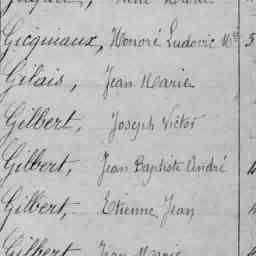 Gicquiaux, Honoré Ludovic Mie 5
Gilais, Jean Marie
Gilbert, Joseph Victor
Gilbert, Jean Baptiste André
Gilbert, Etienne Jean
Gilbert, Jean Marie